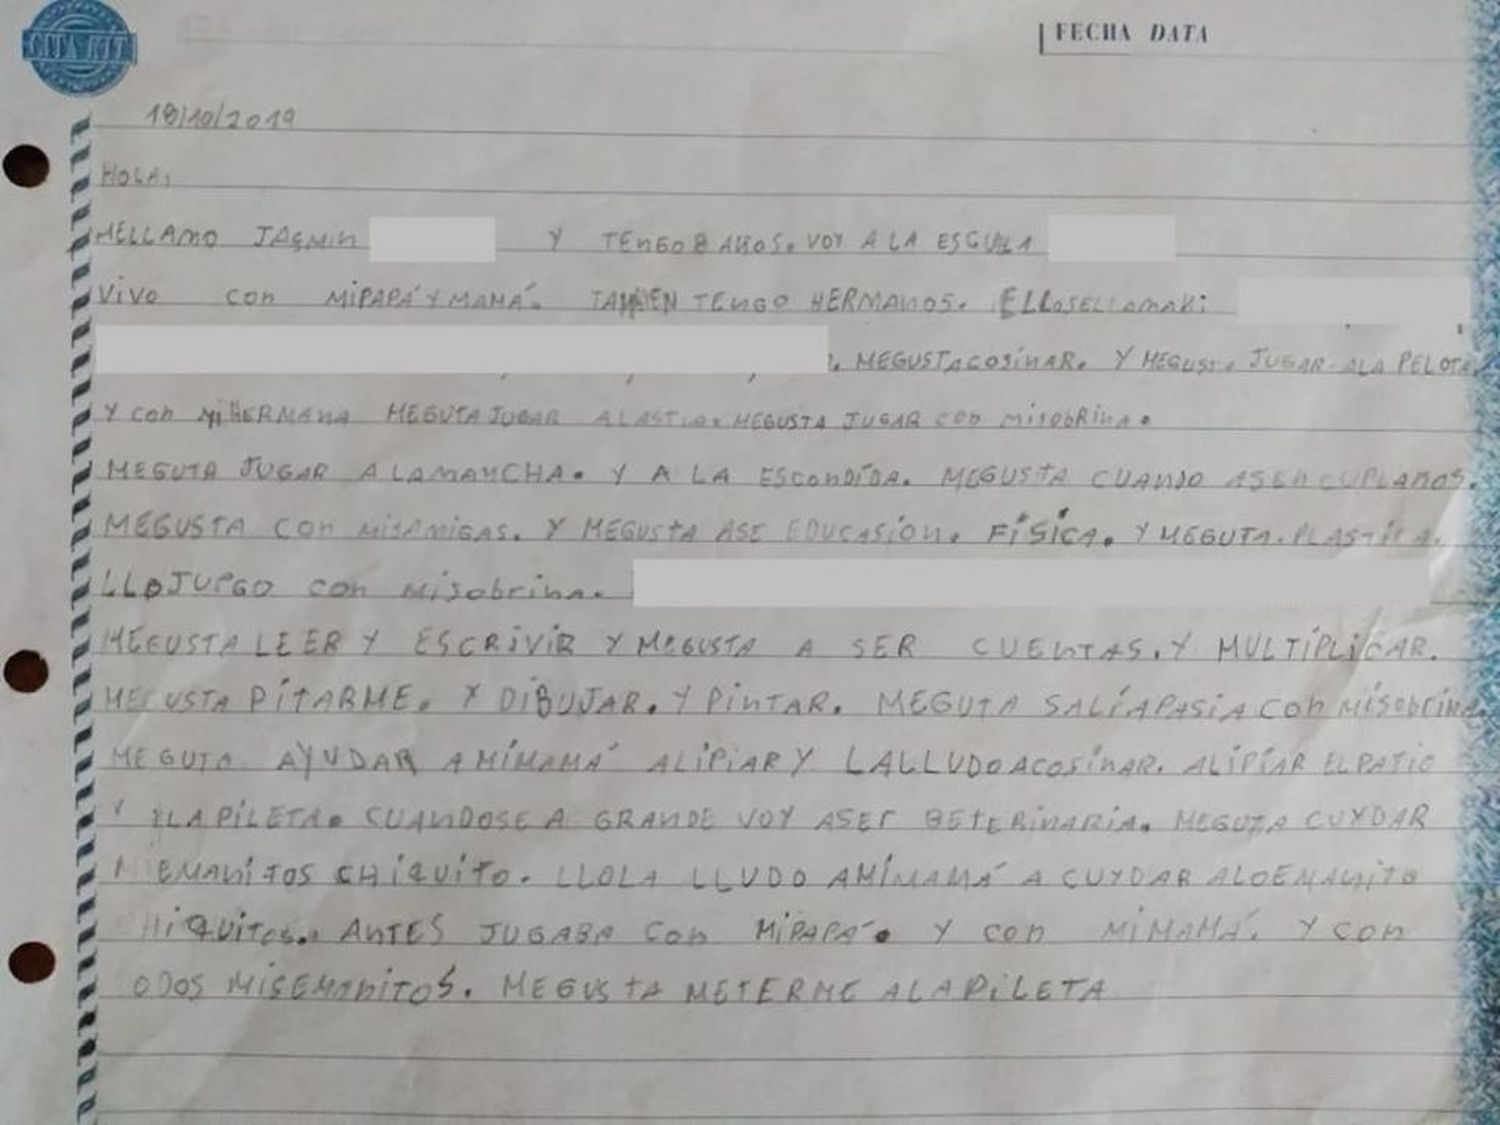 CITA KIT
FECHA DATA
18/10/2019
HOLA,
MELLAMO JASMIN Y TENGO 8 AÑOS. VOY A LA ESCULA
VIVO con MIPAPÁ Y MAMÁ. TAMIEN TENGO HERMANOS. ELLOSELLAMAN:
. MEGUSTACOSINAR. Y MEGUSTA JUGAR ALA PELOTA
Y con MIHERMANA MEGUTAJUGAR A MEGUSTA JUGAR con misobRina.
MEGUTA JUGAR A LAMANCHA. Y A LA ESCONDIDA. MEGUSTA CUANDO ASEN CUPLAÑOS.
MEGUSTA CON MISAMIGAS. Y MEGUSTA ASE EDUCASIÓN. FÍSICA. Y MEGUTA. PLASTICA.
LLOJUEGO con misobrina.
MEGUSTA LEER Y ESCRIVIR Y MEGUSTA A SER CUENTAS. Y MULTIPLICAR.
MEGUSTA PITARME. Y DIBUJAR. Y PINTAR. MEGUTA SALÍAPASIA con Misobrina
MEGUTA AYUDAR AMIMAMÁ ALIPIAR Y LALLUDO ACOSINAR. ALIPIAR ELPATIO
Y LAPILETA. CUANDOSEA GRANDE VOY ASER BETERINARIA. MEGUTA CUYDAR
EMANITOS CHIQUITO. LLOLA LLUDO AMIMAMÁ A CUYDAR ALOEMANITO
HIQUITOS. ANTES JUGABA con MIPAPÁ. Y con MIMAMÁ. Y con
ODOS MISEMANITOS. MEGUSTA METERME ALAPILETA